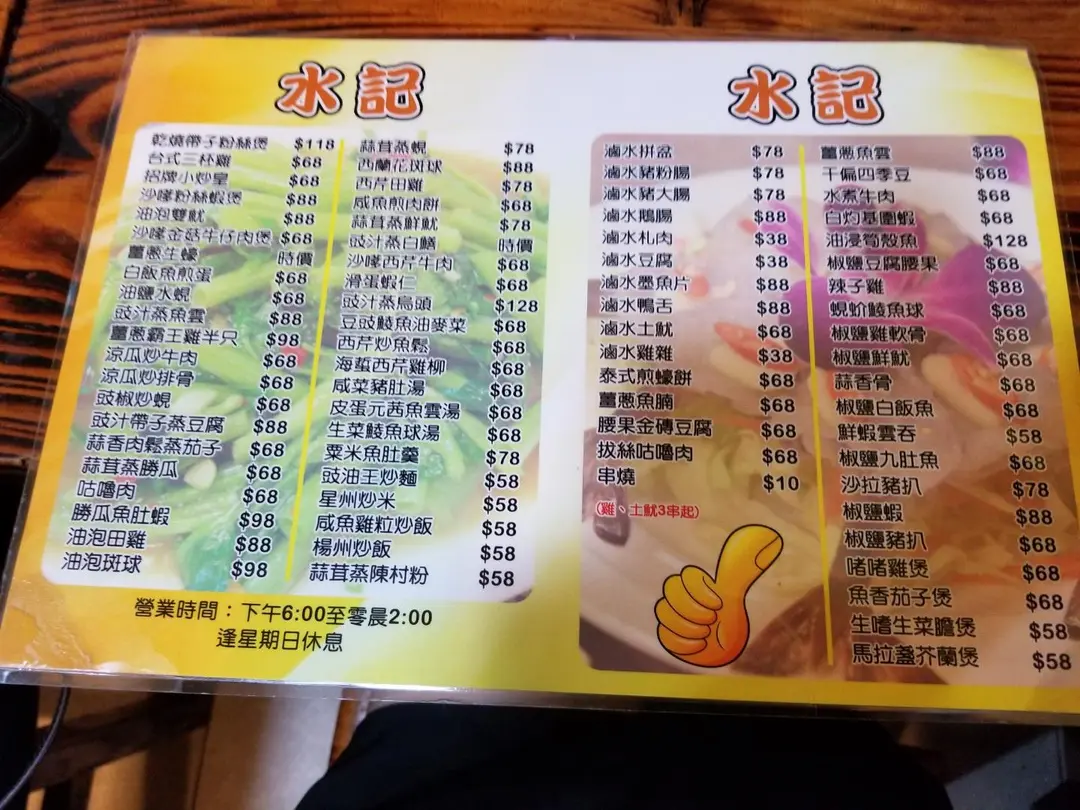 水記
乾燒帶子粉絲煲 $118
台式三杯雞 $68
招牌小炒皇 $68
沙嗲粉絲蝦煲 $88
油泡雙魷 $88
沙嗲金菇牛仔肉煲 $68
薑蔥生蠔 時價
白飯魚煎蛋 $68
油鹽水蜆 $68
豉汁蒸魚雲 $88
薑蔥霸王雞半只 $98
涼瓜炒牛肉 $68
涼瓜炒排骨 $68
豉椒炒蜆 $68
豉汁帶子蒸豆腐 $88
蒜香肉鬆蒸茄子 $68
蒜茸蒸勝瓜 $68
咕嚕肉 $68
勝瓜魚肚蝦 $98
油泡田雞 $88
油泡斑球 $98
蒜茸蒸蜆 $78
西蘭花斑球 $88
西芹田雞 $78
咸魚煎肉餅 $68
蒜茸蒸鮮魷 $78
豉汁蒸白鱔 時價
沙嗲西芹牛肉 $68
滑蛋蝦仁 $68
豉汁蒸烏頭 $128
豆豉鯪魚油麥菜 $68
西芹炒魚鬆 $68
海蜇西芹雞柳 $68
咸菜豬肚湯 $68
皮蛋元茜魚雲湯 $68
生菜鯪魚球湯 $68
粟米魚肚羹 $78
豉油王炒麵 $58
星州炒米 $58
咸魚雞粒炒飯 $58
楊州炒飯 $58
蒜茸蒸陳村粉 $58
營業時間：下午6:00至零晨2:00
逢星期日休息
水記
滷水拼盆 $78
滷水豬粉腸 $78
滷水豬大腸 $78
滷水鵝腸 $88
滷水札肉 $38
滷水豆腐 $38
滷水墨魚片 $88
滷水鴨舌 $88
滷水土魷 $88
滷水雞雜 $38
泰式煎蠔餅 $68
薑蔥魚腩 $68
腰果金磚豆腐 $68
拔絲咕嚕肉 $68
串燒 $10
(雞、土魷3串起)
薑蔥魚雲 $88
干偏四季豆 $68
水煮牛肉 $68
白灼基圍蝦 $68
油浸筍殼魚 $128
椒鹽豆腐腰果 $68
辣子雞 $88
蜆蚧鯪魚球 $68
椒鹽雞軟骨 $68
椒鹽鮮魷 $68
蒜香骨 $68
椒鹽白飯魚 $68
鮮蝦雲吞 $58
椒鹽九肚魚 $68
沙拉豬扒 $78
椒鹽蝦 $88
椒鹽豬扒 $68
啫啫雞煲 $68
魚香茄子煲 $68
生嗜生菜膽煲 $58
馬拉盞芥蘭煲 $58